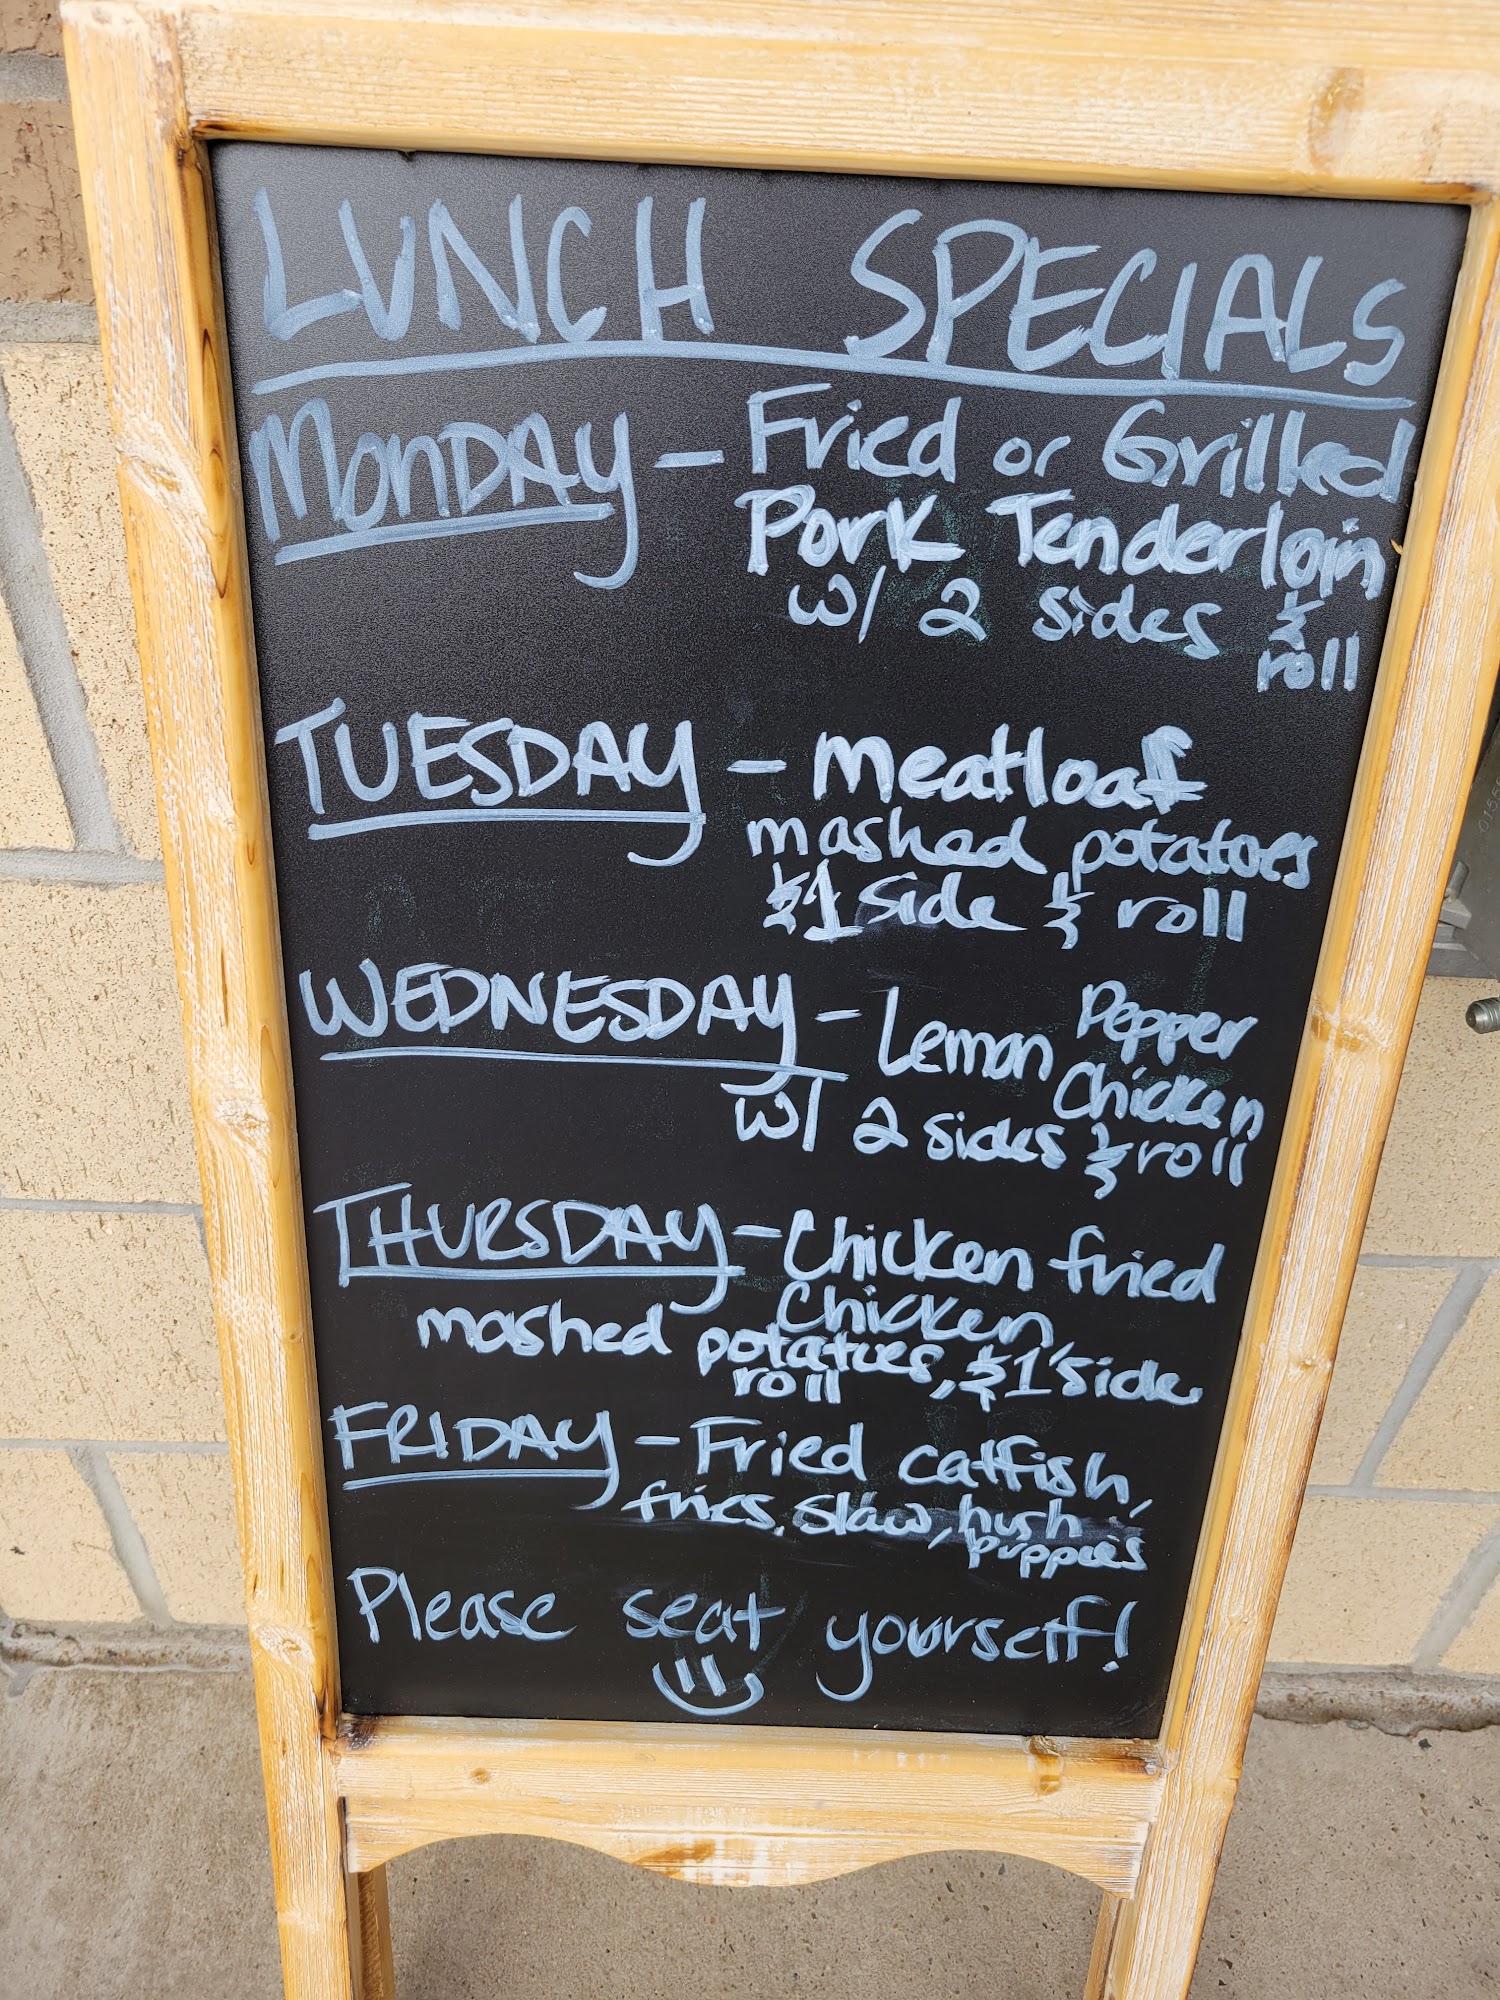 LUNCH SPECIALS
MONDAY - Fried or Grilled
Pork Tenderloin
w/ 2 sides &
roll
TUESDAY - Meatloaf
mashed potatoes
& 1 side & roll
WEDNESDAY - Lemon Pepper
Chicken
w/ 2 sides & roll
THURSDAY - Chicken fried
Chicken
mashed potatoes, & 1 side
roll
FRIDAY - Fried catfish,
fries, slaw, hush
puppies
Please seat yourself!